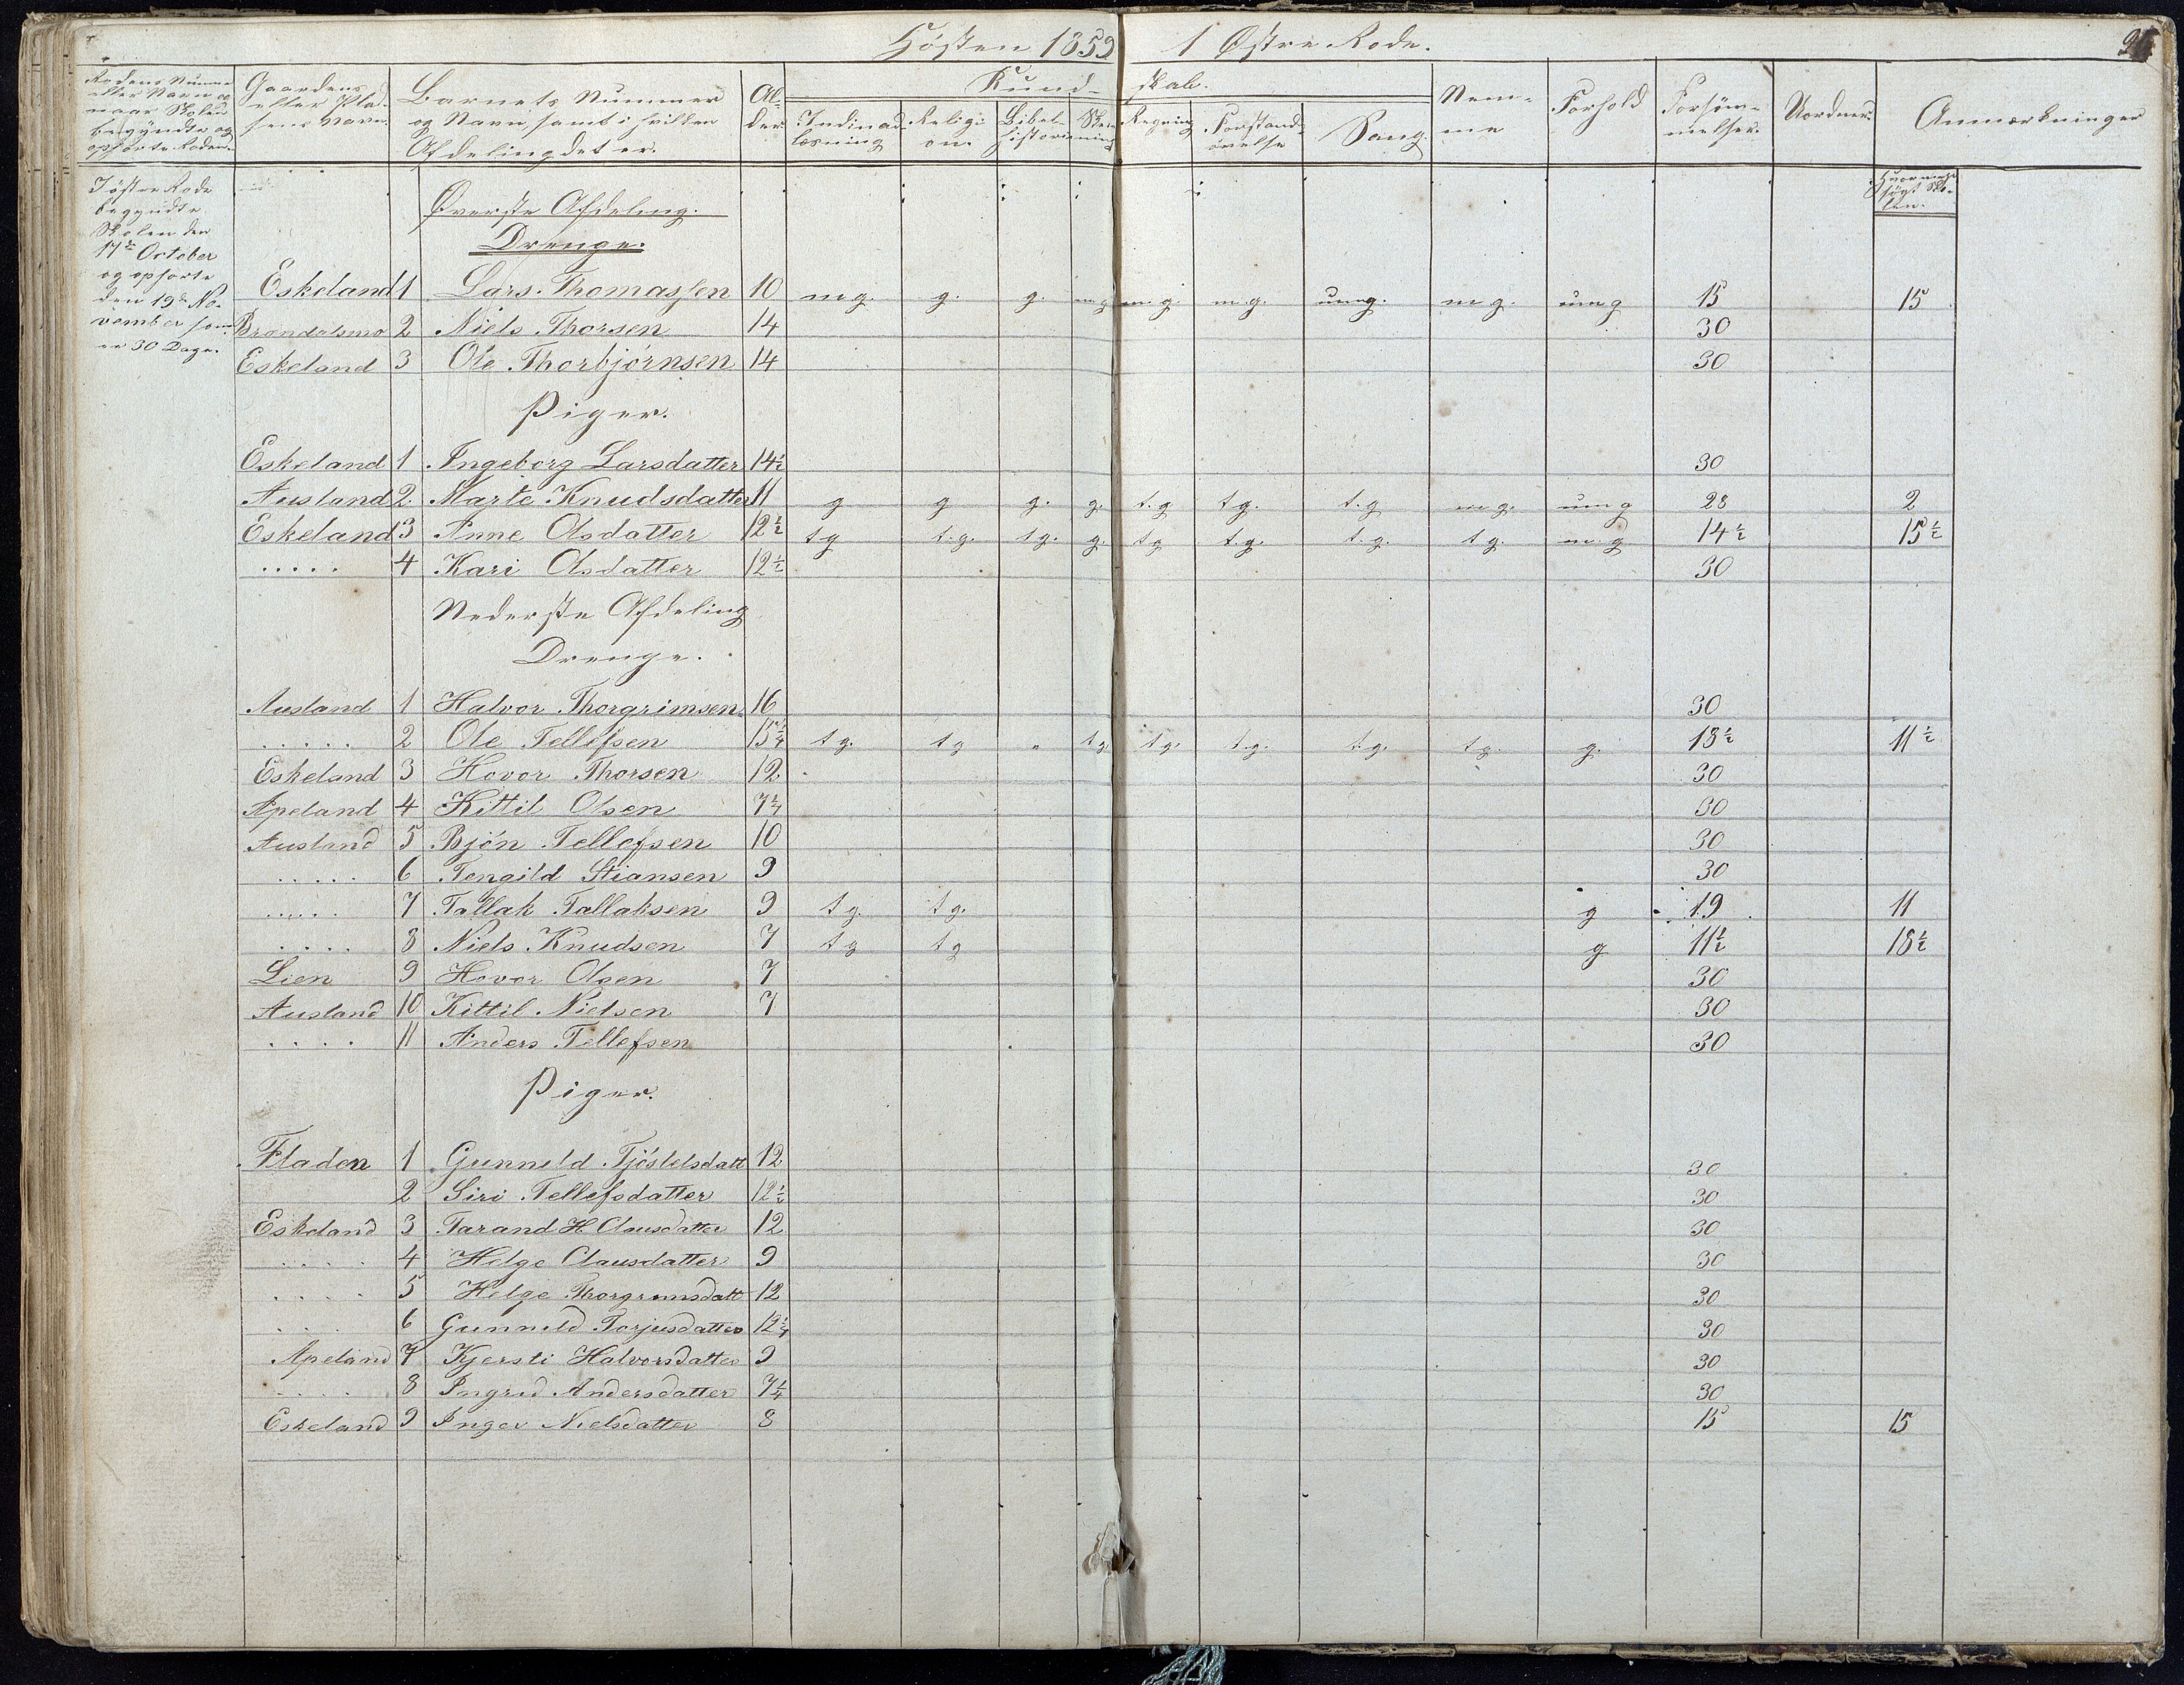 Hösten 1859 1 Østre Rode.
Rodens Numer eller Navn og naar Skolen begyndte og ophørte Roden.
Gaardens eller Pladsens Navn.
Barnets Nummer og Navn, samt i hvilken Afdeling det er.
Alder
Kundskab.
Indinadlæsning
Religion.
Bibelhistorie
Skrivning
Regning
Forstandsøvelse
Sang.
Nemme
Forhold
Forsømmelser.
Uorden
Anmærkninger
I östre Rode
begyndte
Skolen den
17de October
og ophørte
den 19de No-
vember som
er 30 Dage.
søgt Sko-
len.
Øverste Afdeling.
Drenge.
Eskeland 1 Lars Thomassen 10 mg. g. g. mg. m.g. m.g. umg. mg. umg 15 15
Brændalsmo 2 Niels Thorsen 14 30
Eskeland 3 Ole Thorbjörnsen 14 30
Piger.
Eskeland 1 Ingeborg Larsdatter 14½ 30
Ausland 2. Marte Knudsdatter 11 g g g. g. t.g tg. t.g mg. umg 28 2
Eskeland 3 Anne Olsdatter 12½ tg t.g. tg. g. tg t.g. t.g. tg. m.g 14½ 15½
..... 4 Kari Olsdatter 12½ 30
Nederste Afdeling
Drenge.
Ausland 1 Halvor Thorgrimsen 16 30
..... 2 Ole Tellefsen 15¼ tg. tg „ tg tg. t.g. t.g. tg. g. 18½ 11½
Eskeland 3 Hovor Thorsen 12 30
Apeland 4 Kittil Olsen 7¼ 30
Ausland 5 Bjön Tellefsen 10 30
..... 6 Tengild Stiansen 9 30
..... 7 Tallak Tallaksen 9 tg. tg. g 19 11
.... 8 Niels Knudsen 7 tg tg g 11½ 18½
Lien 9 Hovor Olsen 7 30
Ausland 10 Kittil Nielsen 7 30
.... 11 Anders Tellefsen 30
Piger.
Fladen 1 Gunneld Tjöstelsdatt 12 30
2 Siri Tellefsdatter 12½ 30
Eskeland 3 Tarand H Clausdatter 12 30
.... 4 Helge Clausdatter 9 30
.... 5 Helge Thorgrimsdatt 12 30
... 6 Gunneld Torjusdatter 12¼ 30
Apeland 7 Kjersti Halvorsdatter 9 30
.... 8 Ingrid Andersdatter 7¼ 30
Eskeland 9 Inger Nielsdatter 8 15 15